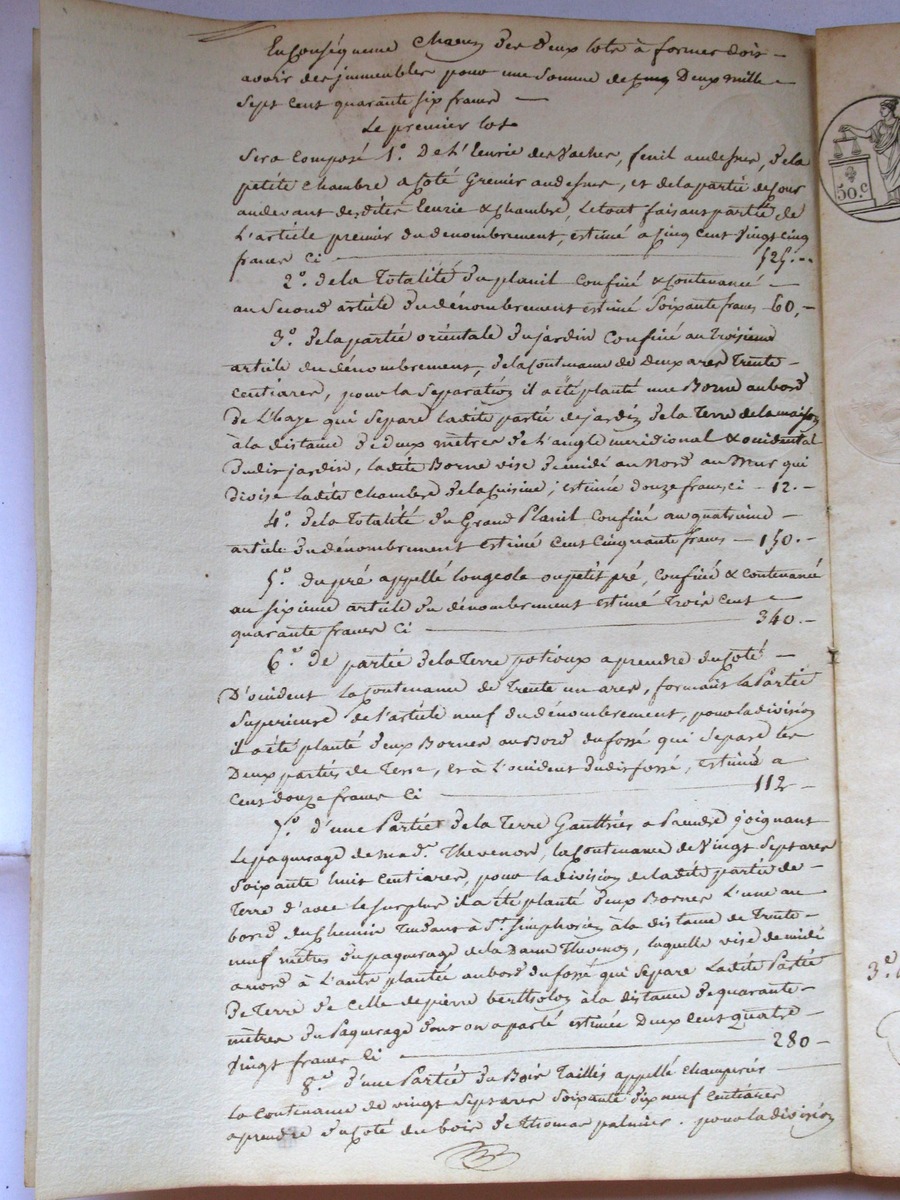 En Conséquence Chacun des deux lots à former doit
avoir des jmmeubles pour une Somme de Deux mille
Sept Cent quarante Six francs
Le premier lot
Sera Composé 1.° De L'Ecurie des Vaches, fenil audessus, de la
petite Chambre a Coté Grenier audessus, et de la partie de Cour
audevant desdites Ecurie & Chambre, Le tout faisant partie de
L'article premier du dénombrement, estimé a Cinq Cent Vingt Cinq
francs Ci 525.--
2.° de la Totalité du planil Confiné & Contenancé
au Second article du dénombrement estimé Soixante francs 60,-
3.° de la partie orientale du jardin Confiné au Troisieme
article du dénombrement, de la Contenance de Deux ares Trente
Centiares, pour la Separation il a été planté une Borne au bord
de L'haye qui Separe ladite partie de jardin de la Terre de la maison
à la distance de deux mètres de L'angle meridional & occidental
dudit jardin, ladite Borne vise de midi au Nord au Mur qui
divise ladite Chambre de la Cuisine; estimée douze francs Ci 12.-
4.° de la Totalité du Grand Planil Confiné au quatrieme
article du dénombrement estimé Cent Cinquante francs 150.-
5.° du pré appellé longeola ou petit pré, Confiné & Contenancé
au Sixieme article du dénombrement estimé Trois Cent
quarante francs Ci 340.-
6.° de partie de la Terre potioux a prendre du Coté
D'occident la Contenance de Trente un ares, formant la Partie
Superieure de l'article neuf du dénombrement, pour la division
il a été planté deux Bornes au Bord du fossé qui Separe les
Deux parties de Terre, et à L'occident dudit fossé, Estimée a
Cent douze francs Ci 112 -
7.° d'une Partie de la Terre Gauthier a Prendre joignant
Le paquerage de mad.e Thevenon, la Contenance de Vingt Sept ares
Soixante huit Centiares, pour la division de ladite partie de
Terre d'avec le Surplus il a été planté deux Bornes L'une au
bord du Chemin Tendant à S.t Simphorien à la distance de Trente
neuf mètres du paquerage de la Dame Thevenon, laquelle vise de midi
a nord à L'autre plantée au bord du fossé qui Separe Ladite Partie
de Terre de Celle de pierre bertholon à la distance de quarante
mètres du Paquerage dont on a parlé estimée Deux Cent quatre
Vingt francs Ci 280 -
8.° d'une Partie du Bois Taillis appellé
La Contenance de vingt Sept ares Soixante dix neuf Centiares
a prendre du Coté du bois de Thomas palmier. pour la division
50.c
3.e